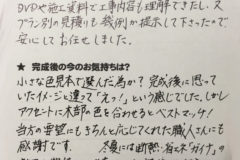 DVDや施工資料で工事内容も理解できたし、又
プラン別の見積りも幾例か提示して下さったので
安心してお任せしました。
★ 完成後の今のお気持ちは?
小さな色見本で選んだ為か?完成後に思って
いたイメージと違って「えっ!」という感じでした。しかし
アクセントに木部の色を合わせるとベストマッチ!
当方の要望にもきちんと応じてくれた職人さんにも
感謝です。
冬夏には断熱・省エネ"ガイナ"